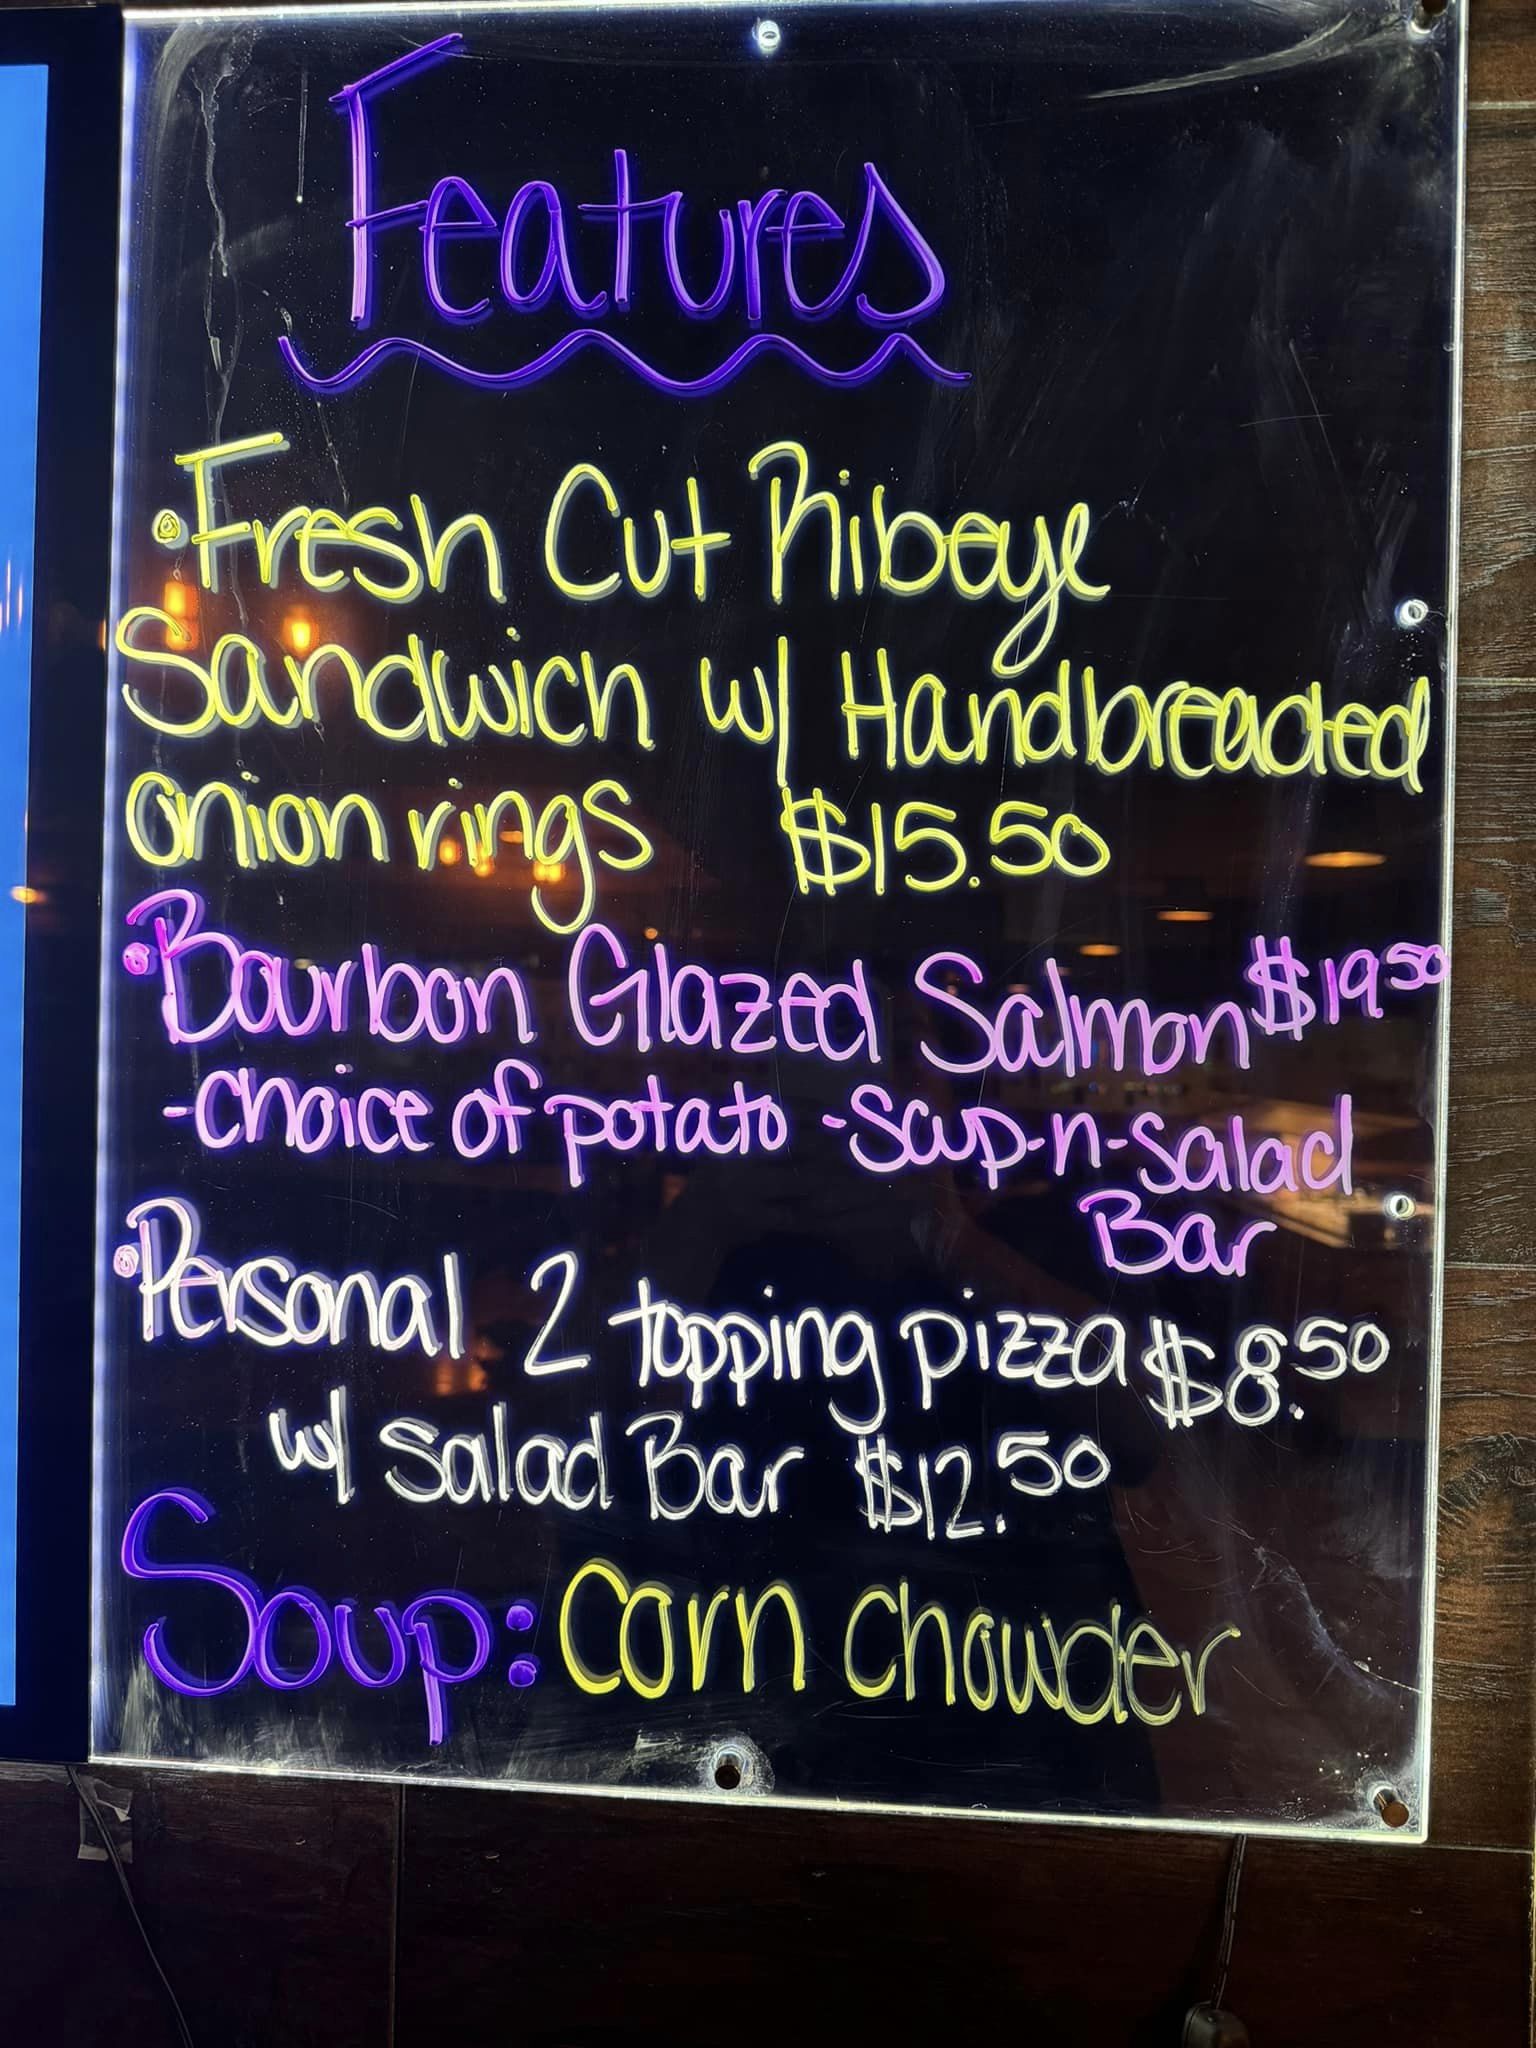 Features
•Fresh Cut Ribeye
Sandwich w/ Handbreaded
onion rings $15.50
•Bourbon Glazed Salmon $19.50
-choice of potato -soup-n-salad
Bar
•Personal 2 topping pizza $8.50
w/ salad Bar $12.50
Soup: Corn Chowder